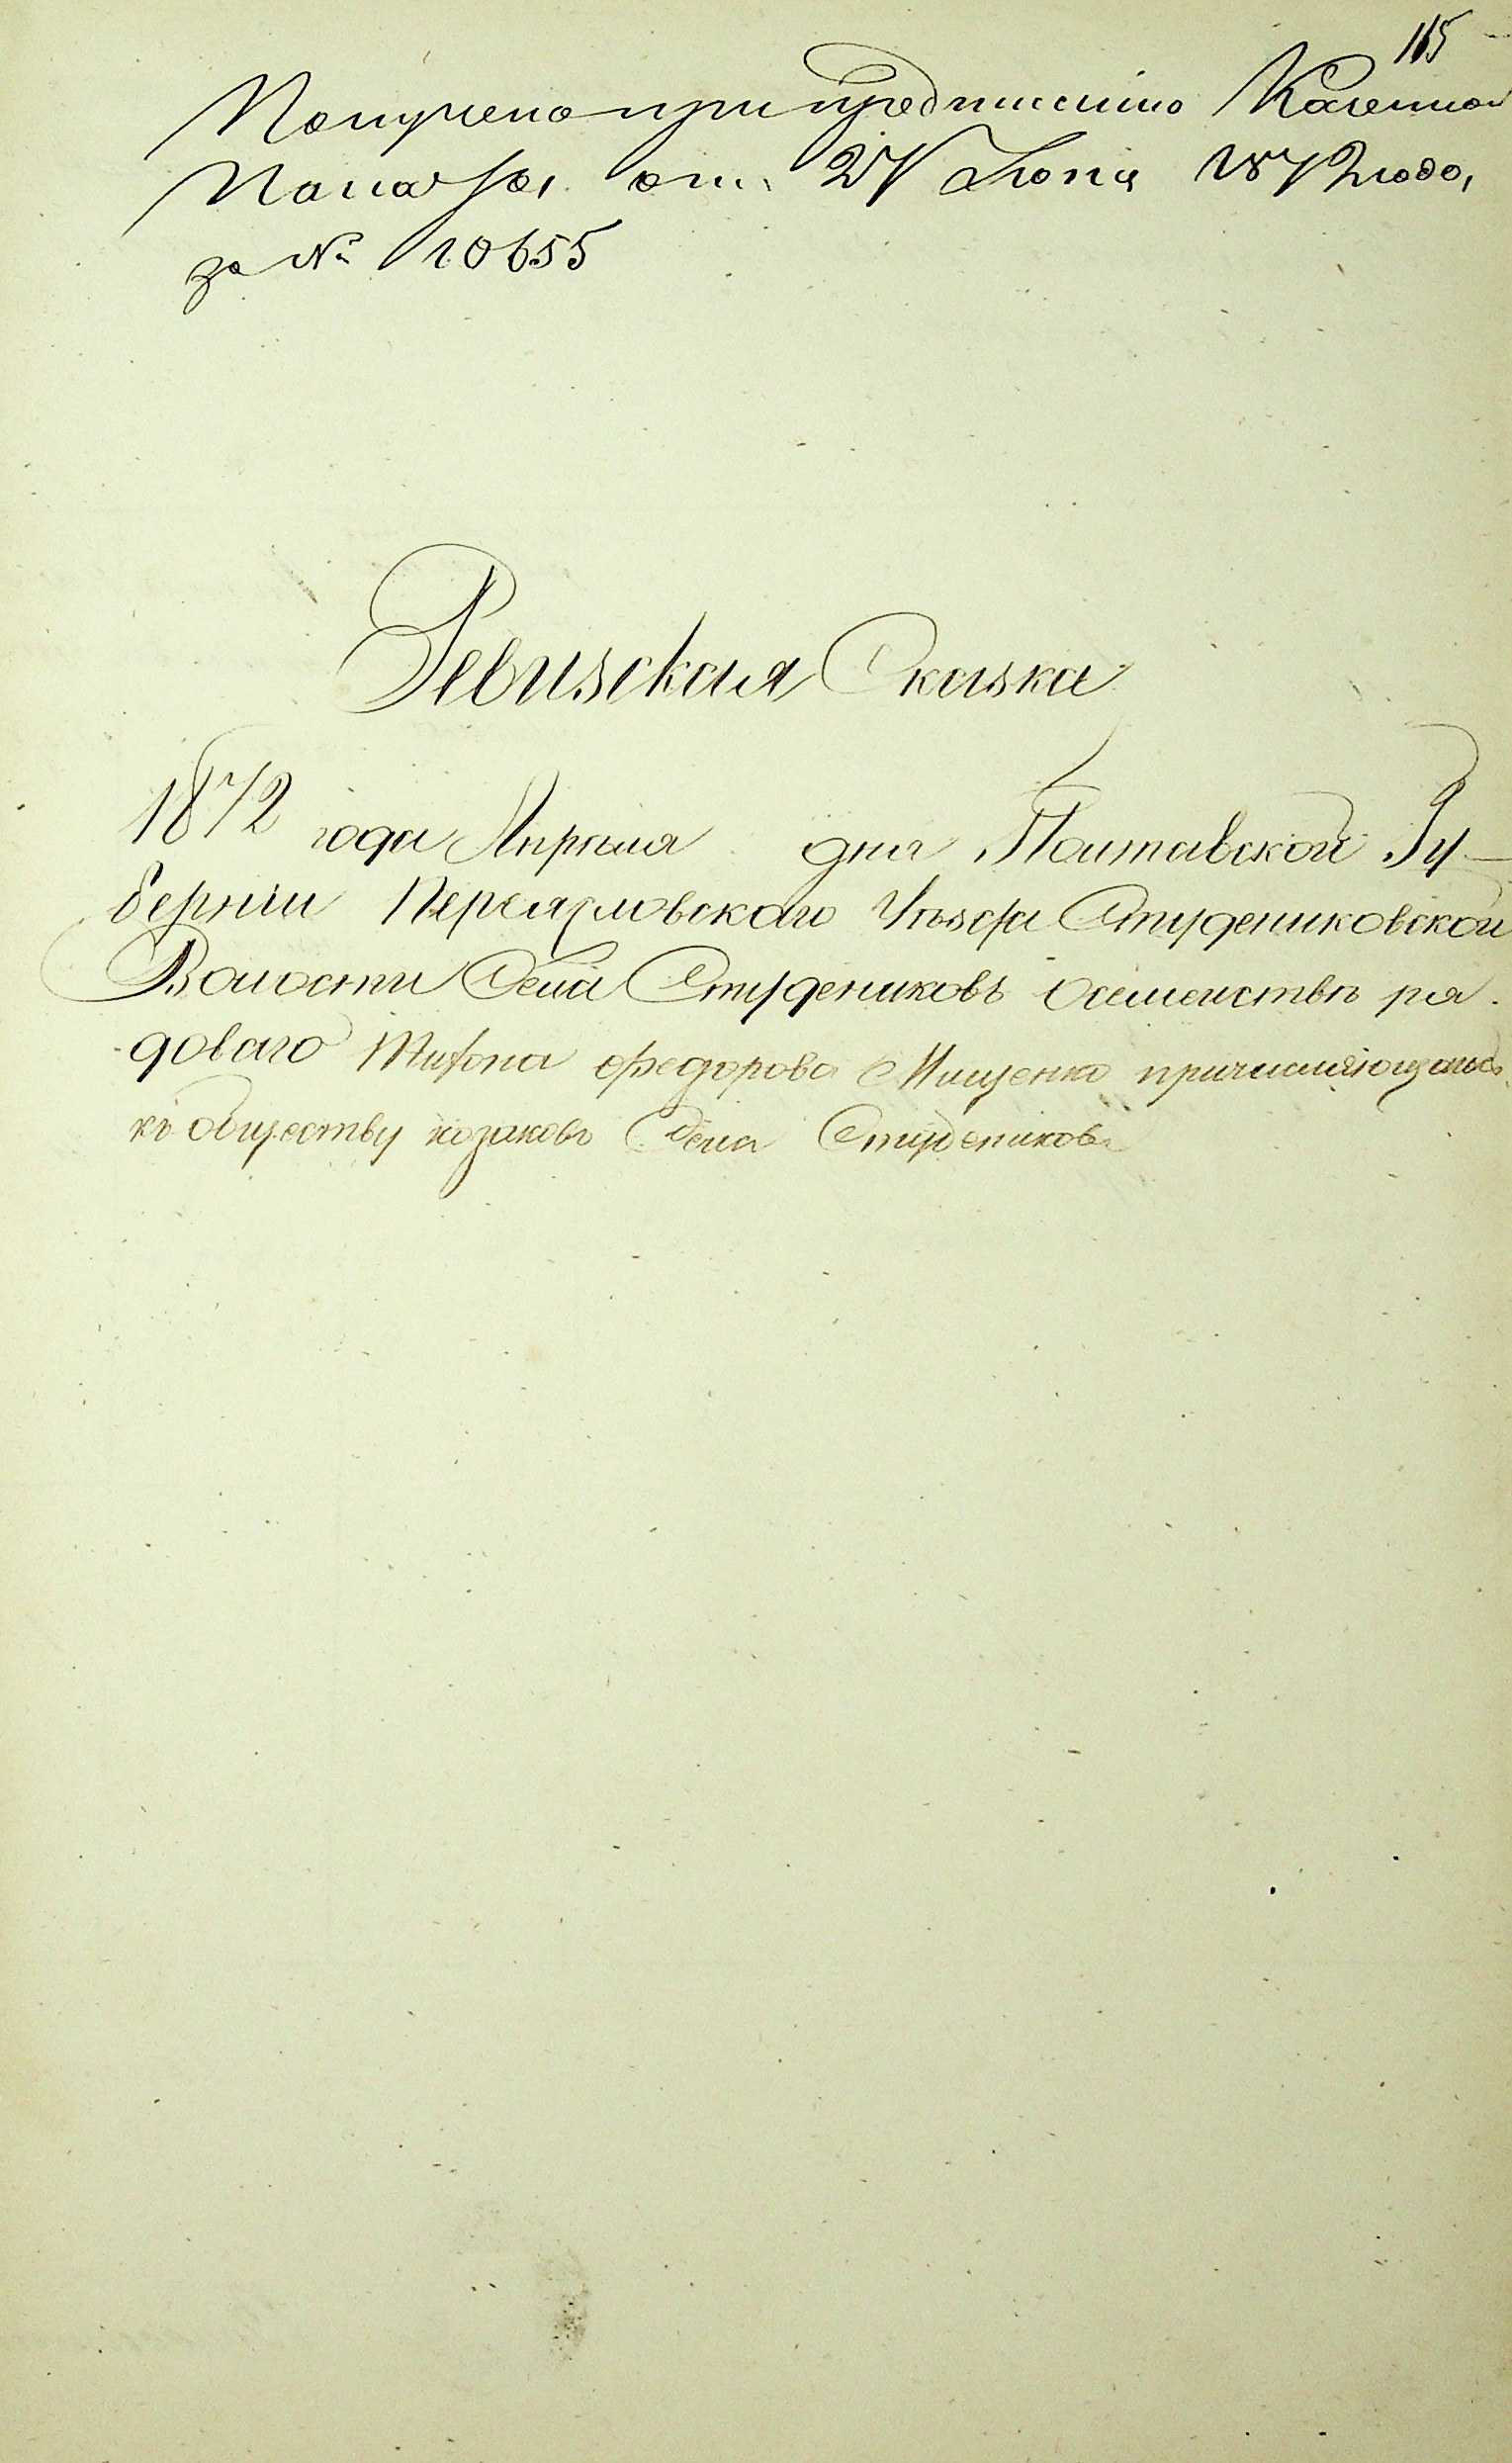 165
Получено при предписанiю Казенной
Палаты отъ 27 Iюня 1872 года,
за № 10655
Ревизская Сказка
1872 года Апреля дня Полтавской Гу-
бернiи Переясловского Уѣзда Студениковской
Волости Села Студениковъ осемействѣ ря-
доваго Федорова Мищенко причисляющагось
къ обществу козаковъ Села Студениковъ